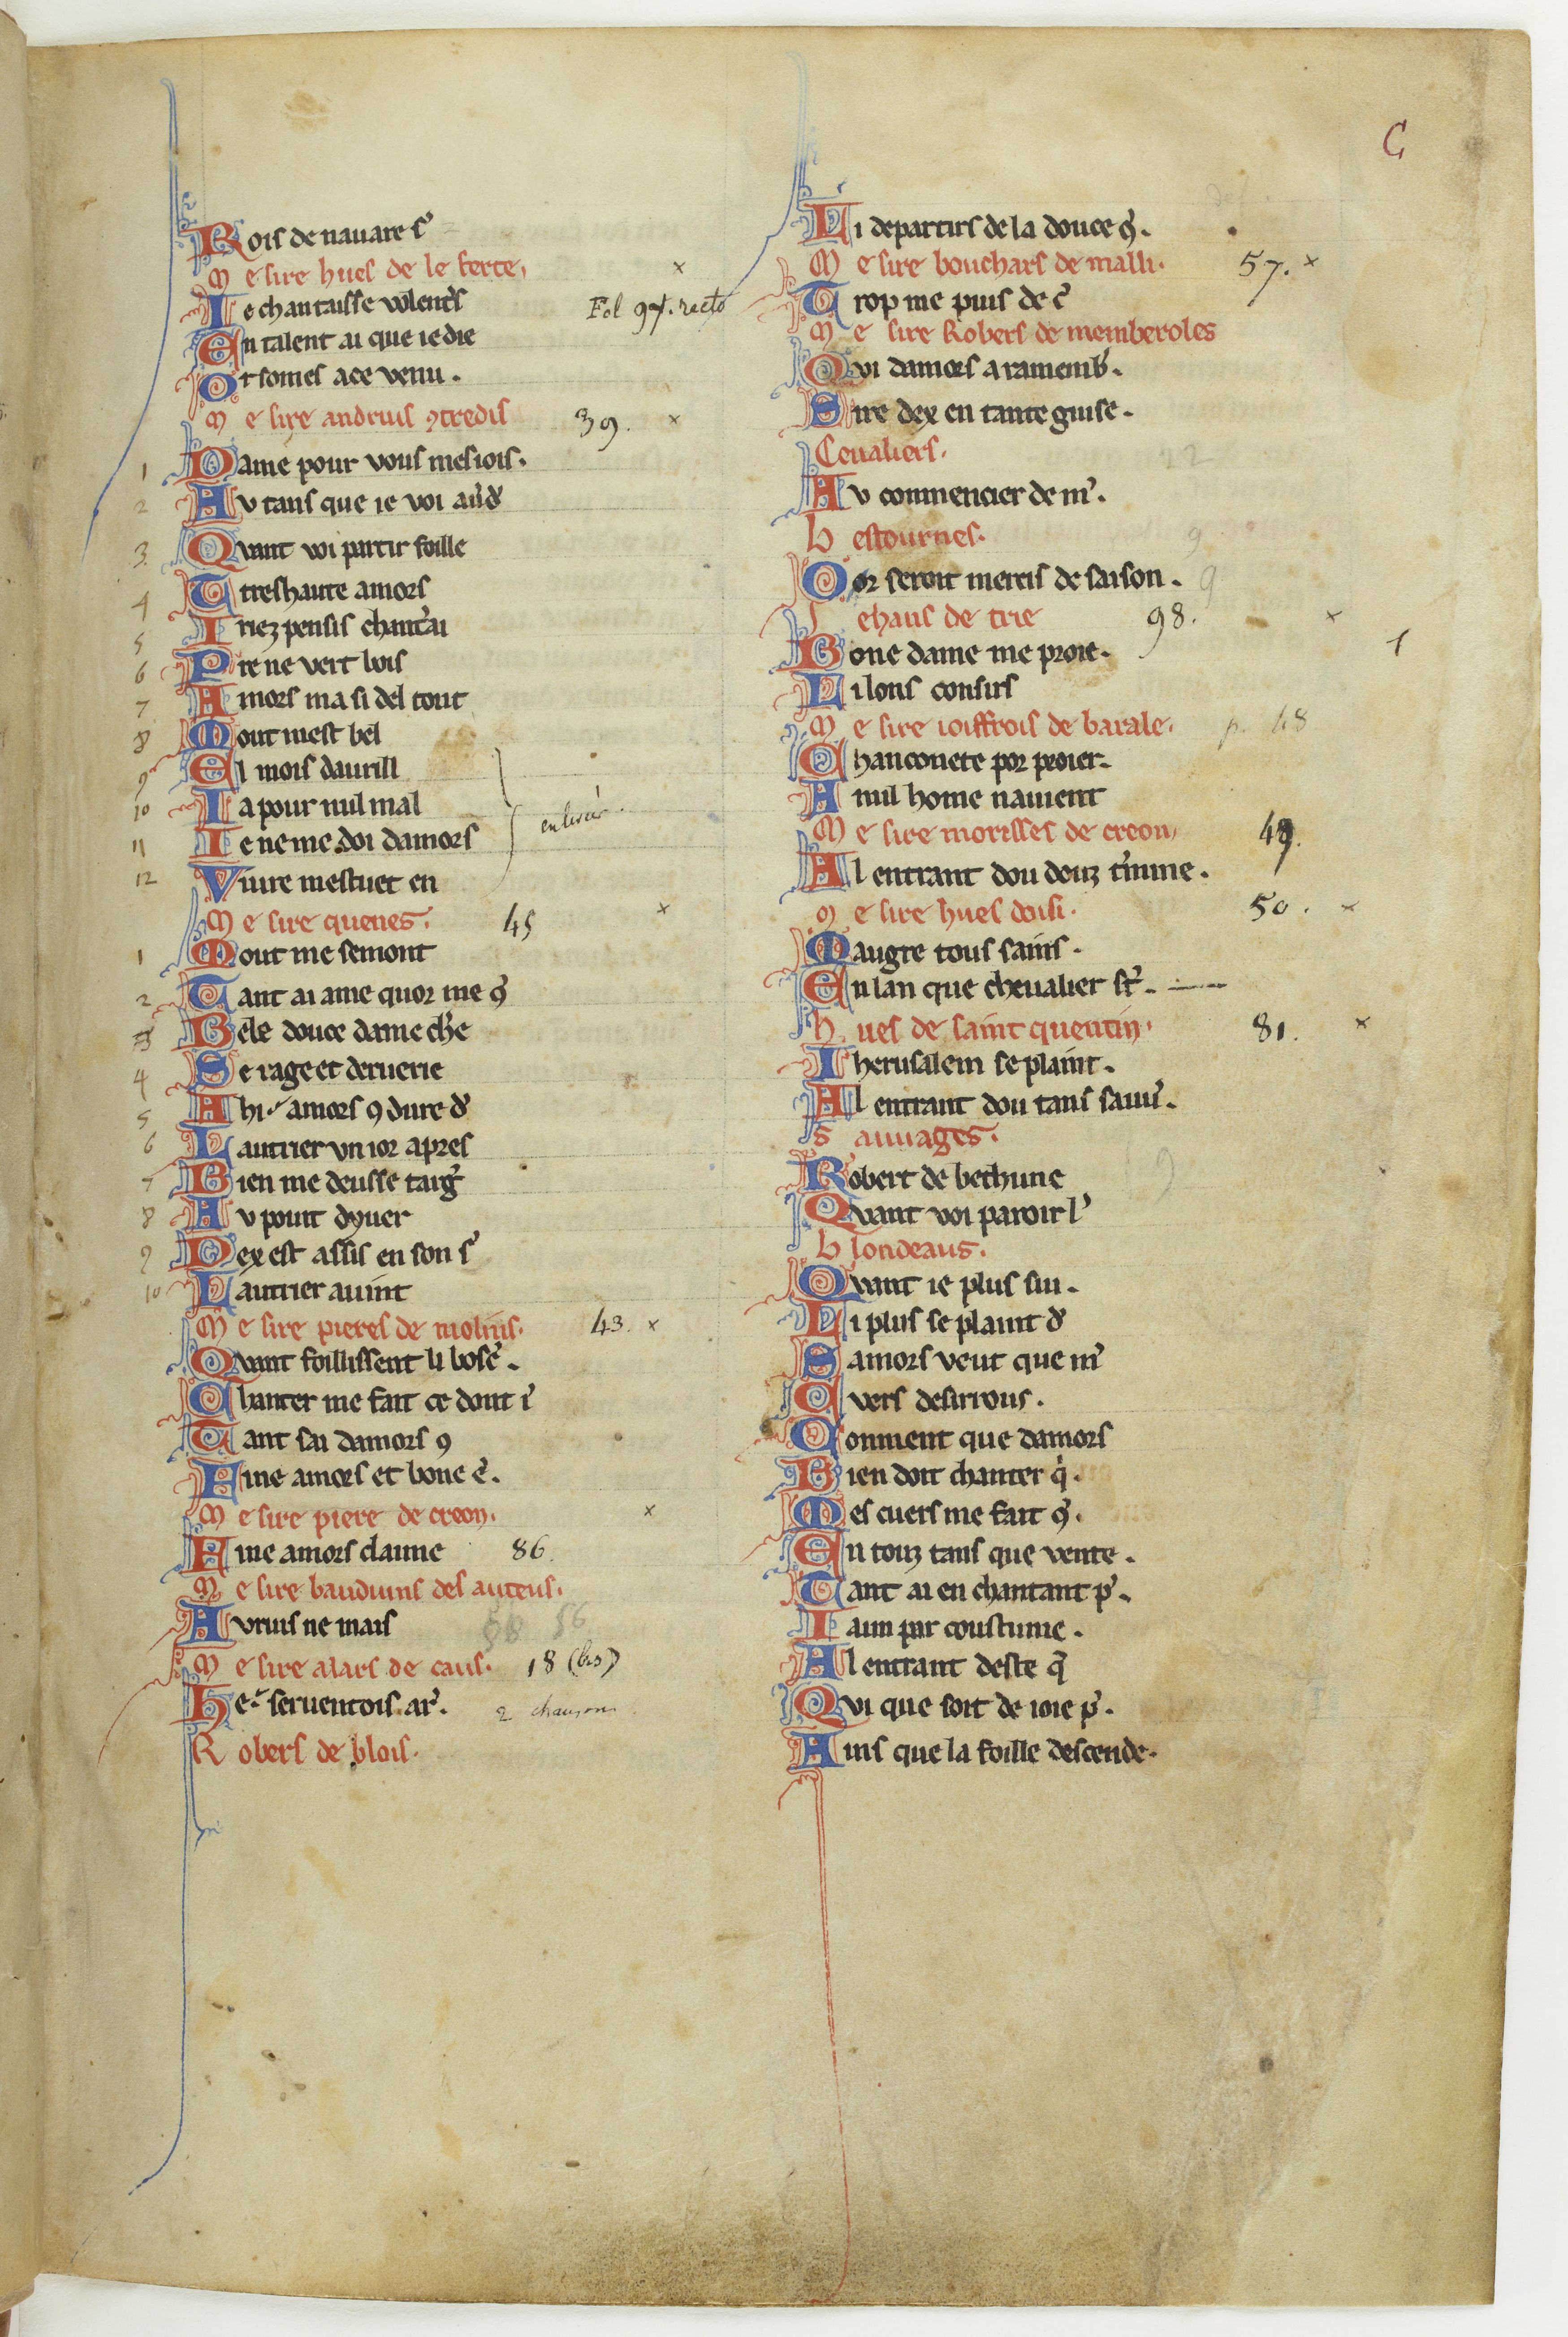 C
Rois de nauare s'
Me sire hues de le ferte, ×
Ie chantaisse volent's Fol 97. recto
En talent ai que ie die
Or somes a ce venu.
Me sire andruis ꝯtredis 39. ×
1 Dame pour vous mesiois.
2 Av tans que ie voi
3. Qvant voi partir foille
4 Treshaute amors
5 Iriez pensis chant'ai
6 Pre ne vert bois
7 Amors ma si del tout
8 Mout mest bel
9 El mois daurill
10 Ia pour nul mal
11 Ie ne me doi damors
12 Viure mestuet en
Me sire quenes. 45 ×
1 Mout me semont
2 Tant ai ame quor me ꝯ'
3 Bele douce dame ch'e
4 Se rage et deruerie
5 Ahi amors ꝯ dure d'
6 Lautrier vn ior apres
7 Bien me deusse targ'
8 Av point dyuer
9 Dex est assis en son s'
10 Lautrier auint
Me sire pieres de molins. 43. ×
Qvant foillissent li bosc'.
Chanter me fait ce dont i'
Tant sai damors ꝯ
Fine amors et bone e'.
Me sire piere de creon. ×
Fine amors claime 86.
Me sire bauduins des auteus.
Avruis ne mais 56
Me sire alars de caus. 18 (bis)
He' seruentois. ar'. 2 chansons
Robers de blois.
Li departirs de la douce ꝯ'.
Me sire bouchars de malli. 57. ×
Trop me puis de c'
Me sire Robers de memberoles
Qvi damors a ramemb'.
Sire dex en tante guise.
Ceualiers.
Av commencier de m'.
bestournes. 9
Oor seroit mercis de saison. 9
Jehans de trie 98. ×
Bone dame me proie. 1
Li lons consirs
Me sire ioiffrois de barale. p. 48
Chanconete por proier.
A nul home nauient
Me sire morisses de creon, 49.
Al entrant dou douz t'mine.
Me sire hues doisi. 50. ×
Maugre tous sains.
En lan que cheualier s't.
Hues de saint quentin. 81. ×
Iherusalem se plaint.
Al entrant dou tans sauu'.
Sauuages.
Robert de bethune 9
Qvant voi paroir l'
blondeaus.
Qvant ie plus sui.
Li plus se plaint d'
Samors veut que m'
Cvers desirrous.
Conment que damors
Bien doit chanter q'.
Mes cuers me fait ꝯ'.
En touz tans que vente.
Tant ai en chantant p'.
Iaim par coustume.
Al entrant deste q'
Qvi que soit de ioie p'.
Ains que la foille descende.